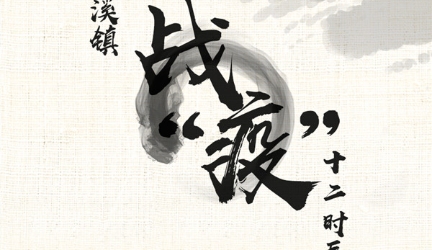 溪镇
战
“疫”
十二时